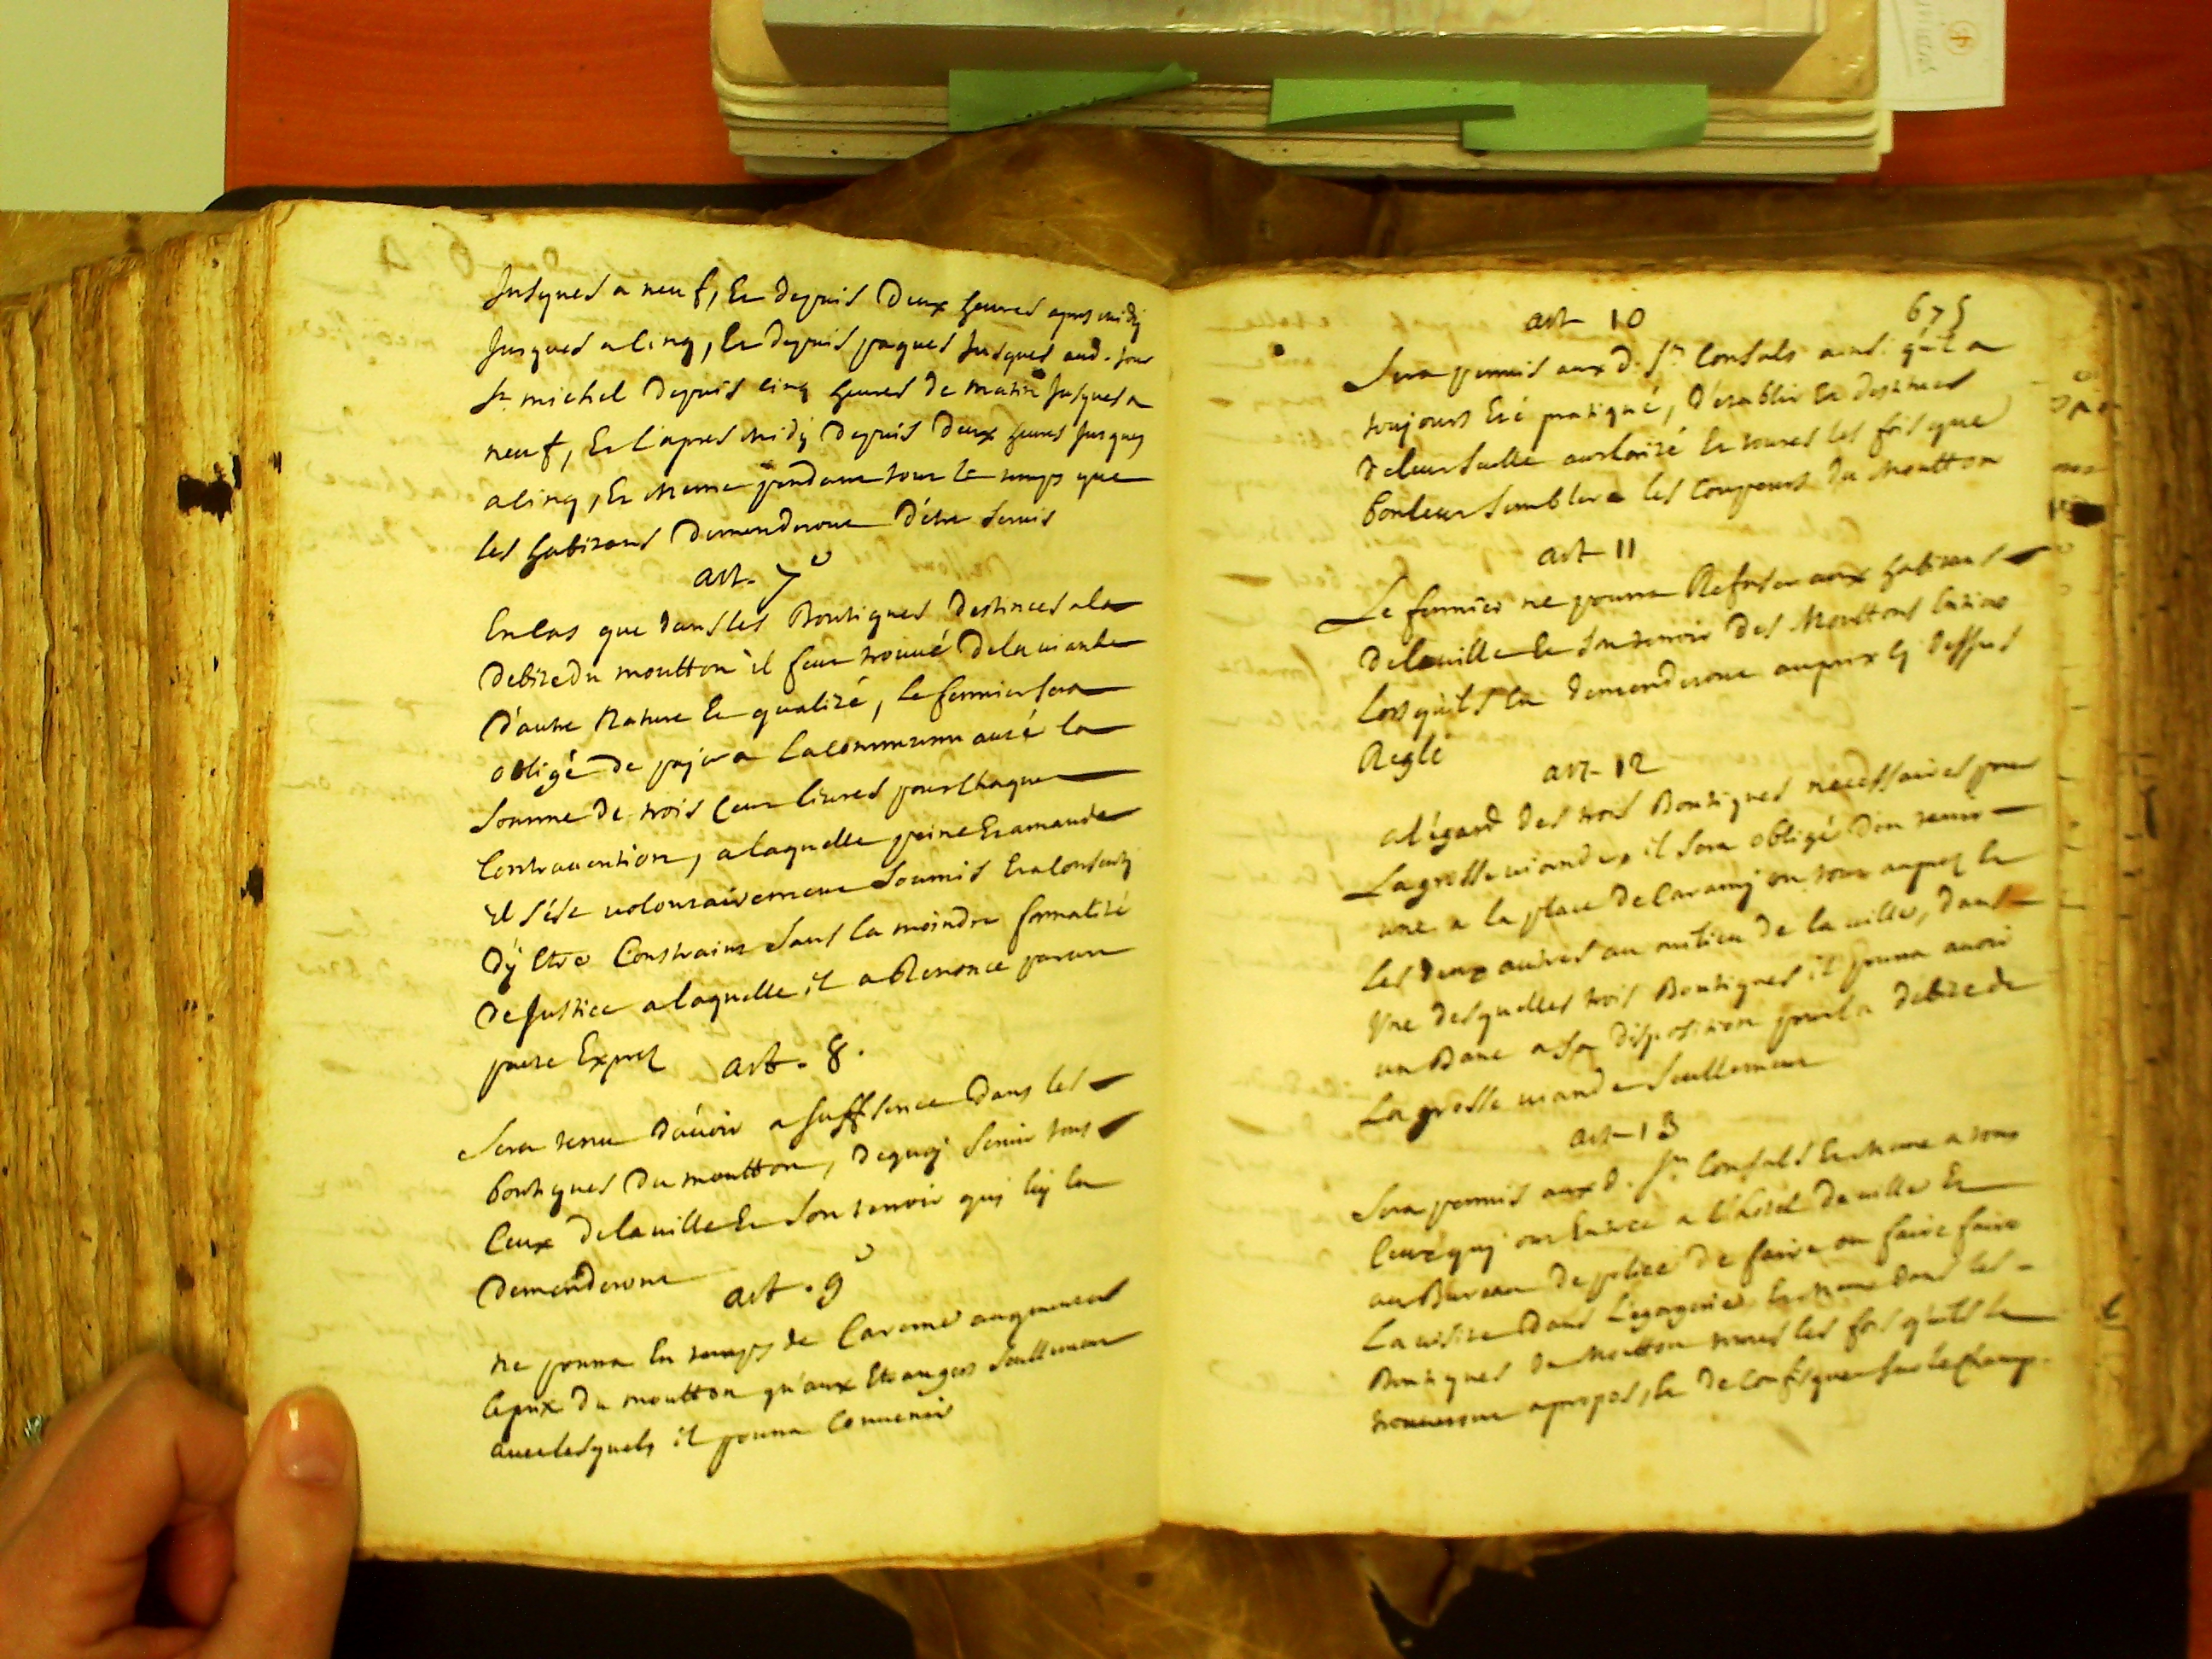 Jusques a neuf, Et depuis Deux heures apres midy
Jusques a Cinq, Et depuis paques Jusques aud. Jour
St. michel Depuis cinq heures de matin Jusques a
neuf, Et l'apres midy Depuis Deux heures Jusques
a Cinq, Et mesme pendant tout le temps que
les habitans Demenderont D'être Servis
art. 7e
En Cas que dans les Boutiques Destinees a la
Debite du moutton il feut trouvé de la viande
D'autre Nature Et qualité, le fermier Sera
obligé de payer a La communauté la
Somme de trois Cent livres pour Chaque
Contravention, a laquelle peine Et amande
il s'ést volontairement Soumis Et a Consenty
D'y Etre Constraint Sans la moindre formalité
De Justice a laquelle il a Renoncé par un
pacte Exprez
art. 8.
Sera tenu D'avoir a Suffisence Dans les
boutiques Du moutton, De quoy Servir tous
Ceux de la ville Et Son terroir quy luy En
Demenderont
art. 9e
ne pourra En temps de Careme augmenter
le prix du moutton qu'aux Etrangers Seullement
avec lesquels il pourra Convenir
675
art 10
Sera permis aux d. Srs Consuls ainsi qu'il a
toujours Eté pratiqué, D'etablir Et destituer
de leur Seulle authorité Et toutes les fois que
bon leur Semblera les Coupeurs du Moutton
art 11
Le fermier ne pourra Refuser aux habitans
de la ville Et Son terroir Des Mouttons Entiers
Lors qu'ils En Demenderont au prix Cy Dessus
Reglé
art 12
a l'égard Des trois Boutiques necessaires pour
La grosse viande, il Sera obligé D'en tenir
une a la place de Caramy ou tout auprez Et
les deux autres au milieu de la ville, dans
Une desquelles trois Boutiques il pourra avoir
un Banc a Sa Disposition pour la debite de
La grosse viande Seullement
art 13
Sera permis aux d. Srs Consuls Et mesme a tous
Ceux quy ont Entrée a l'hotel de ville Et
au Bureau De police De faire ou faire faire
La visite Dans L'egorgerie Et mesme Dans les
Boutiques du Moutton toutes les fois qu'ils le
trouveront a propos, Et De Confisquer Sur le Champ